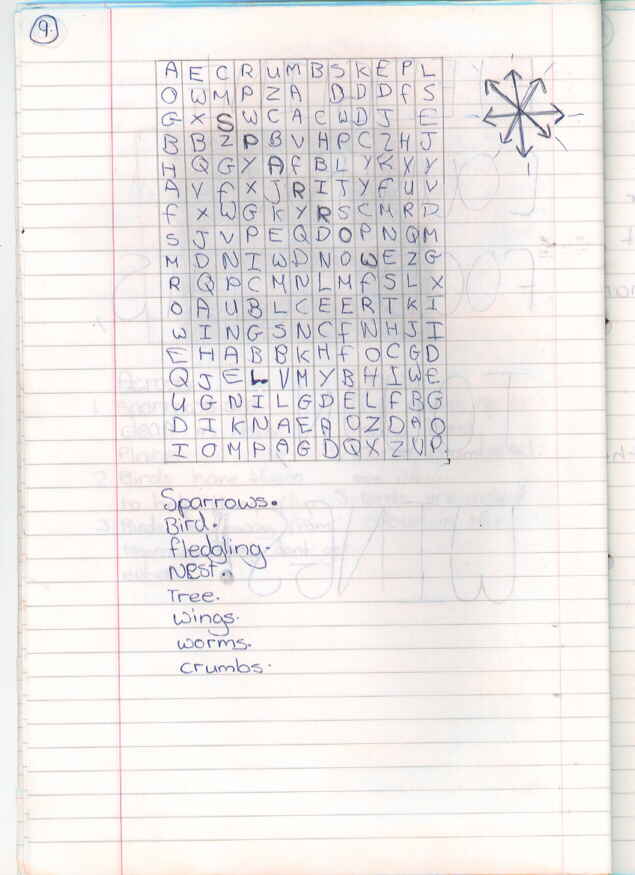 9.
A E C R U M B S K E P L
O W M P Z A D D D f S
G X S W C A C W D J E
B B Z P B V H P C Z H J
H Q G Y A f B L Y K X Y
A V f X J R I T Y F U V
f X W G K Y R S C M R D
S J V P E Q D O P N Q M
M D N I W D N O W E Z G
R Q P C M N L M f S L X
O A U B L C E E R T K I
W I N G S N C f N H J I
E H A B B K H f O C G D
Q J E L V M Y B H I W E
U G N I L G D E L F B G
D I K N A E A O Z D A O
I O M P A G D Q X Z V P
Sparrows.
Bird.
fledgling.
Nest.
Tree.
wings.
worms.
crumbs.